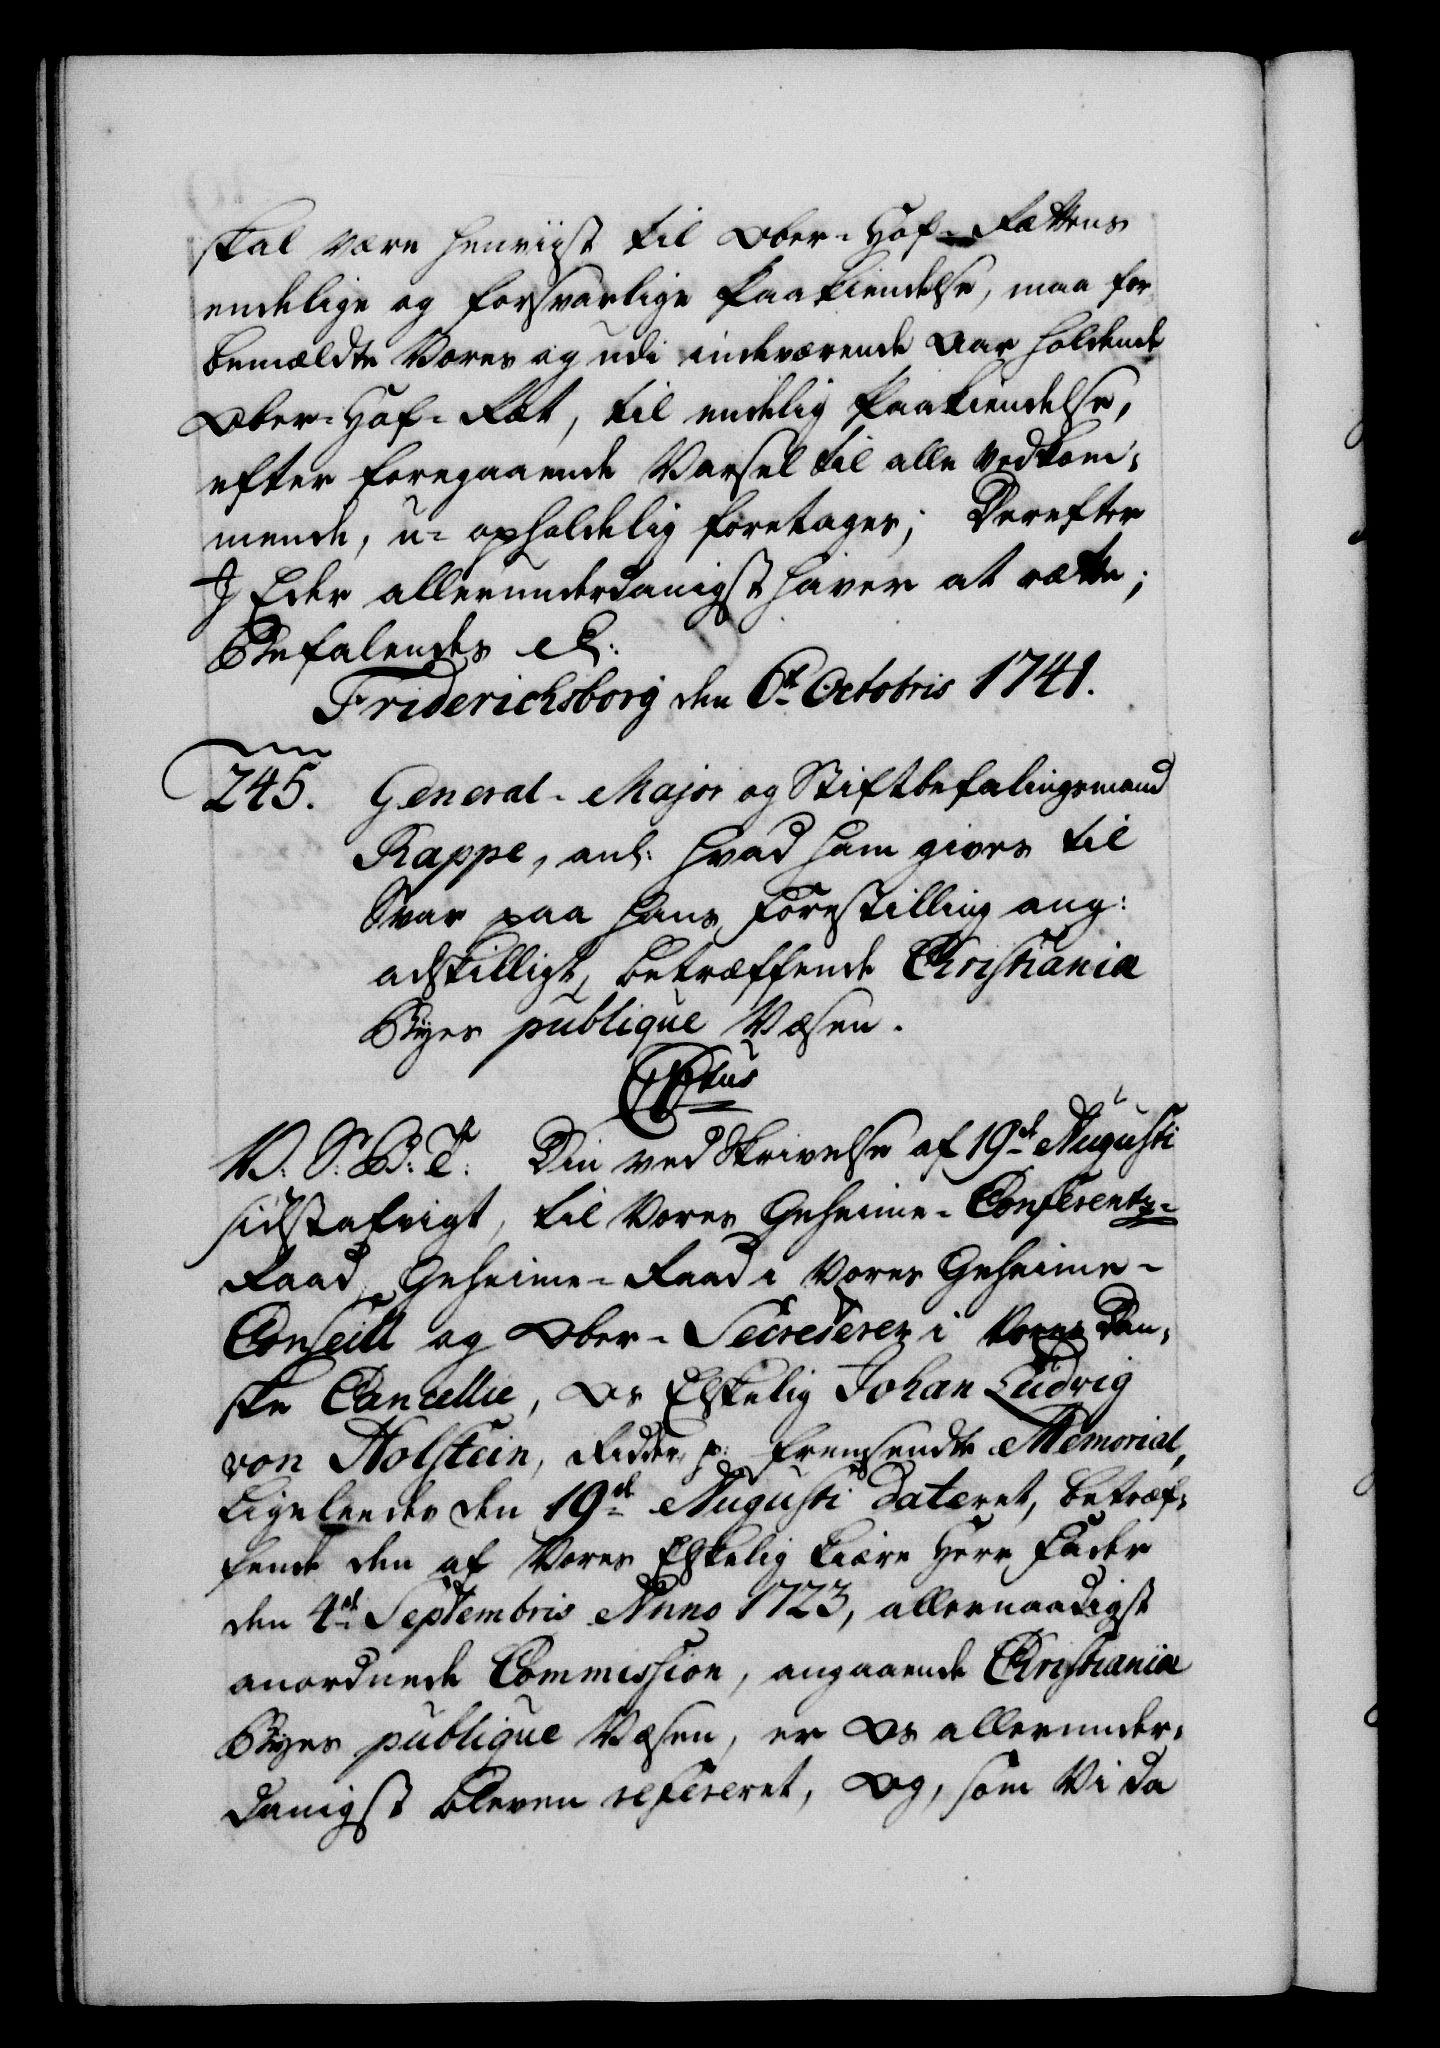 skal være henviist til Ober-Hof-Rættens
endelige og forsvarlige Paakiendelse, maa for
bemældte Vores og udi indeværende Aar holdende
Ober-Hof-Ræt, til endelig Paakiendelse,
efter foregaaende Varsel til alle vedkom-
mende, u-opholdelig foretages; Derefter
I Eder allerunderdanigst haver at rætte;
Befalendes
Friderichsborg den 6te Octobris 1741.
245. General-Major og Stiftbefalingsmand
Rappe, anl: hvad ham gives til
Svar paa hans Forestilling ang:
adskilligt, betræffende Christiania
Byes publique Væsen.
V: S: B: T: Din ved Skrivelse af 19de Augusti
sidstafvigt, til Vores Geheime-Conferentz-
Raad, Geheime-Raad i Vores Geheime-
Conseill og Ober-Secreterer i Vores Dan-
ske Cancellie, Os Elskelig Johan Ludvig
von Holstein, Ridder p: fremsendte Memorial,
Ligeleedes den 19de Augusti dateret, betræf-
fende den af Vores Elskelig kiære Herr Fader
den 4de Septembris Anno 1723, allernaadigst
anordnede Commission, angaaende Christiania
Byes publique Væsen, er Os allerunder-
danigst bleven refereret, Og, som Vi da